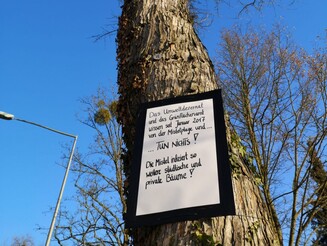 Das Umweltdezernat
und das Grünflächenamt
wissen seit Januar 2017
von der Mistelplage und...
... TUN NICHTS !
Die Mistel infiziert so
weitere städtische und
private Bäume !